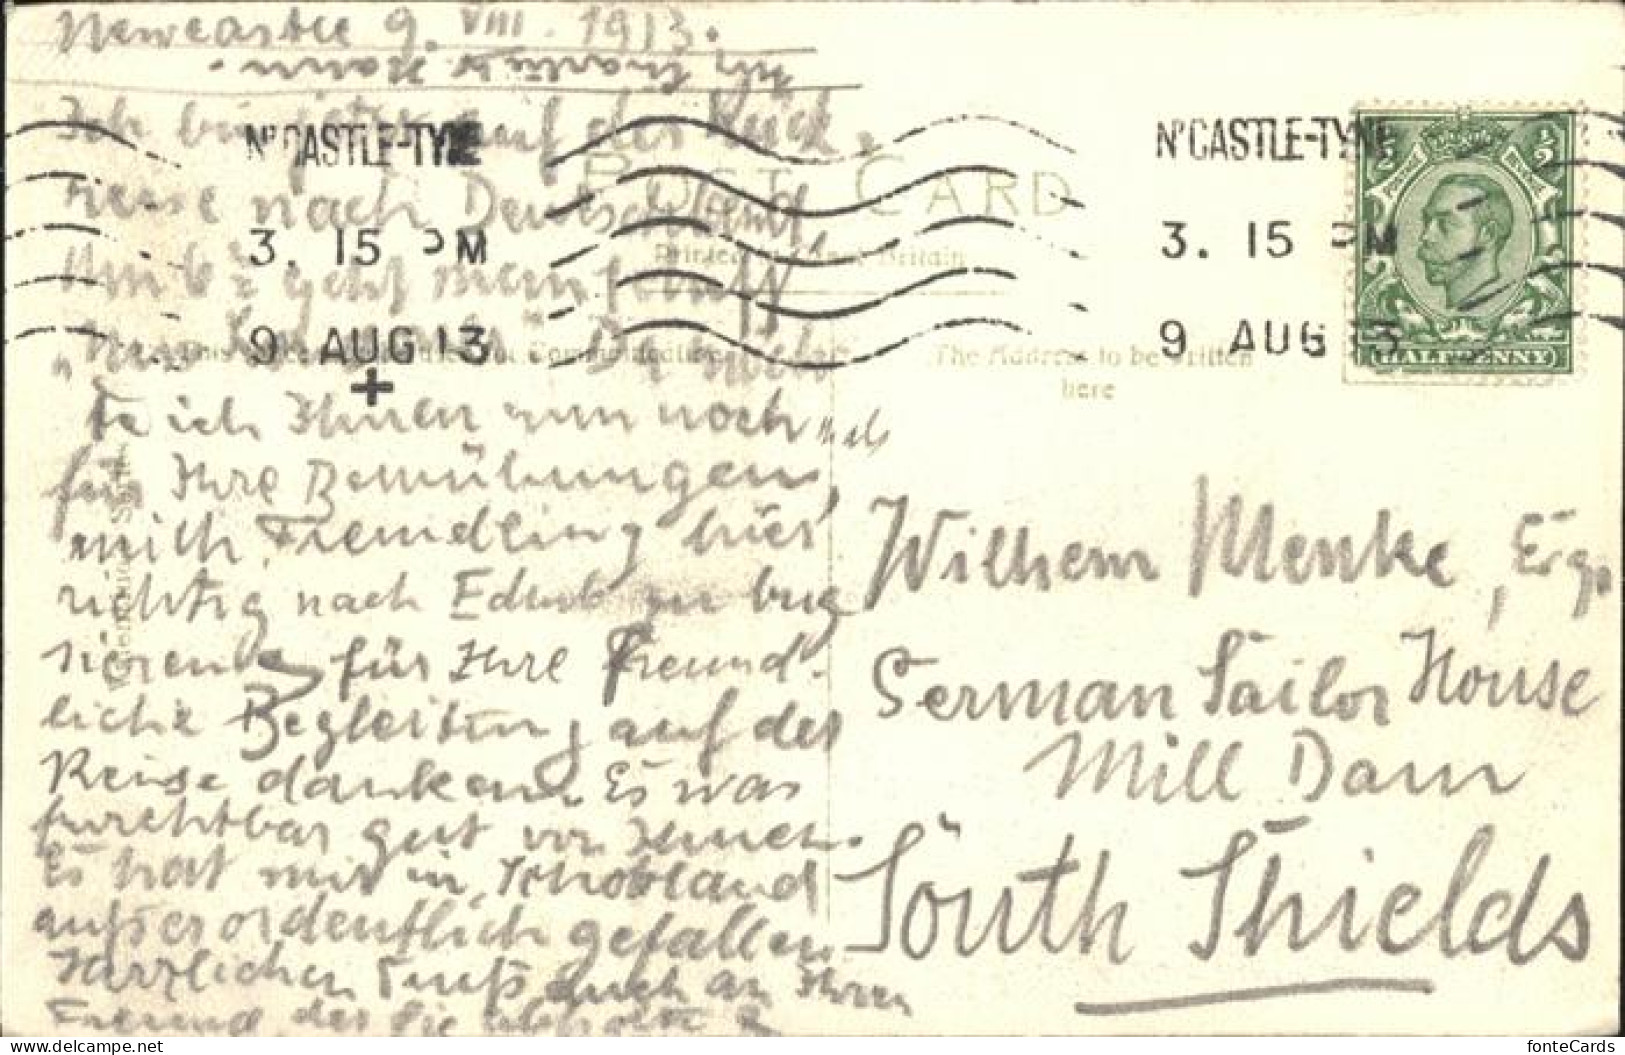 Newcastle 9. VIII. 1913.
Ich bin jetzt auf der Rück-
reise nach Deutschland,
Um 6 geht mein Schiff,
Da möch-
te ich Ihnen nun nochmals
für Ihre Bemühungen,
mich Fremdling hier
richtig nach Edinb zu bug
sieren, für Ihre Freund-
liche Begleitung auf der
Reise danken. Es war
furchtbar gut von Ihnen.
Es hat mir in Schottland
außerordentlich gefallen.
Herzlichen Gruß auch an Ihren
Freund, der Sie
N'CASTLE-TYNE
3. 15 PM
9 AUG 13
POST CARD
Printed in Great Britain
N'CASTLE-TYNE
3. 15 PM
9 AUG 13
1/2 1/2
HALFPENNY
This Space Communication
The Address to be written
here
Wilhelm Menke, Esq.
German Sailor House
Mill Dam
South Shields
fonteCards
delcampe.net